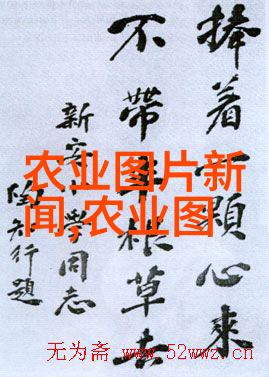 捧着一顆心來
不帶半根草去
新安小學同志
陶知行題
农业图片新
闻-农业图
无为斋 www.52wwz.cn